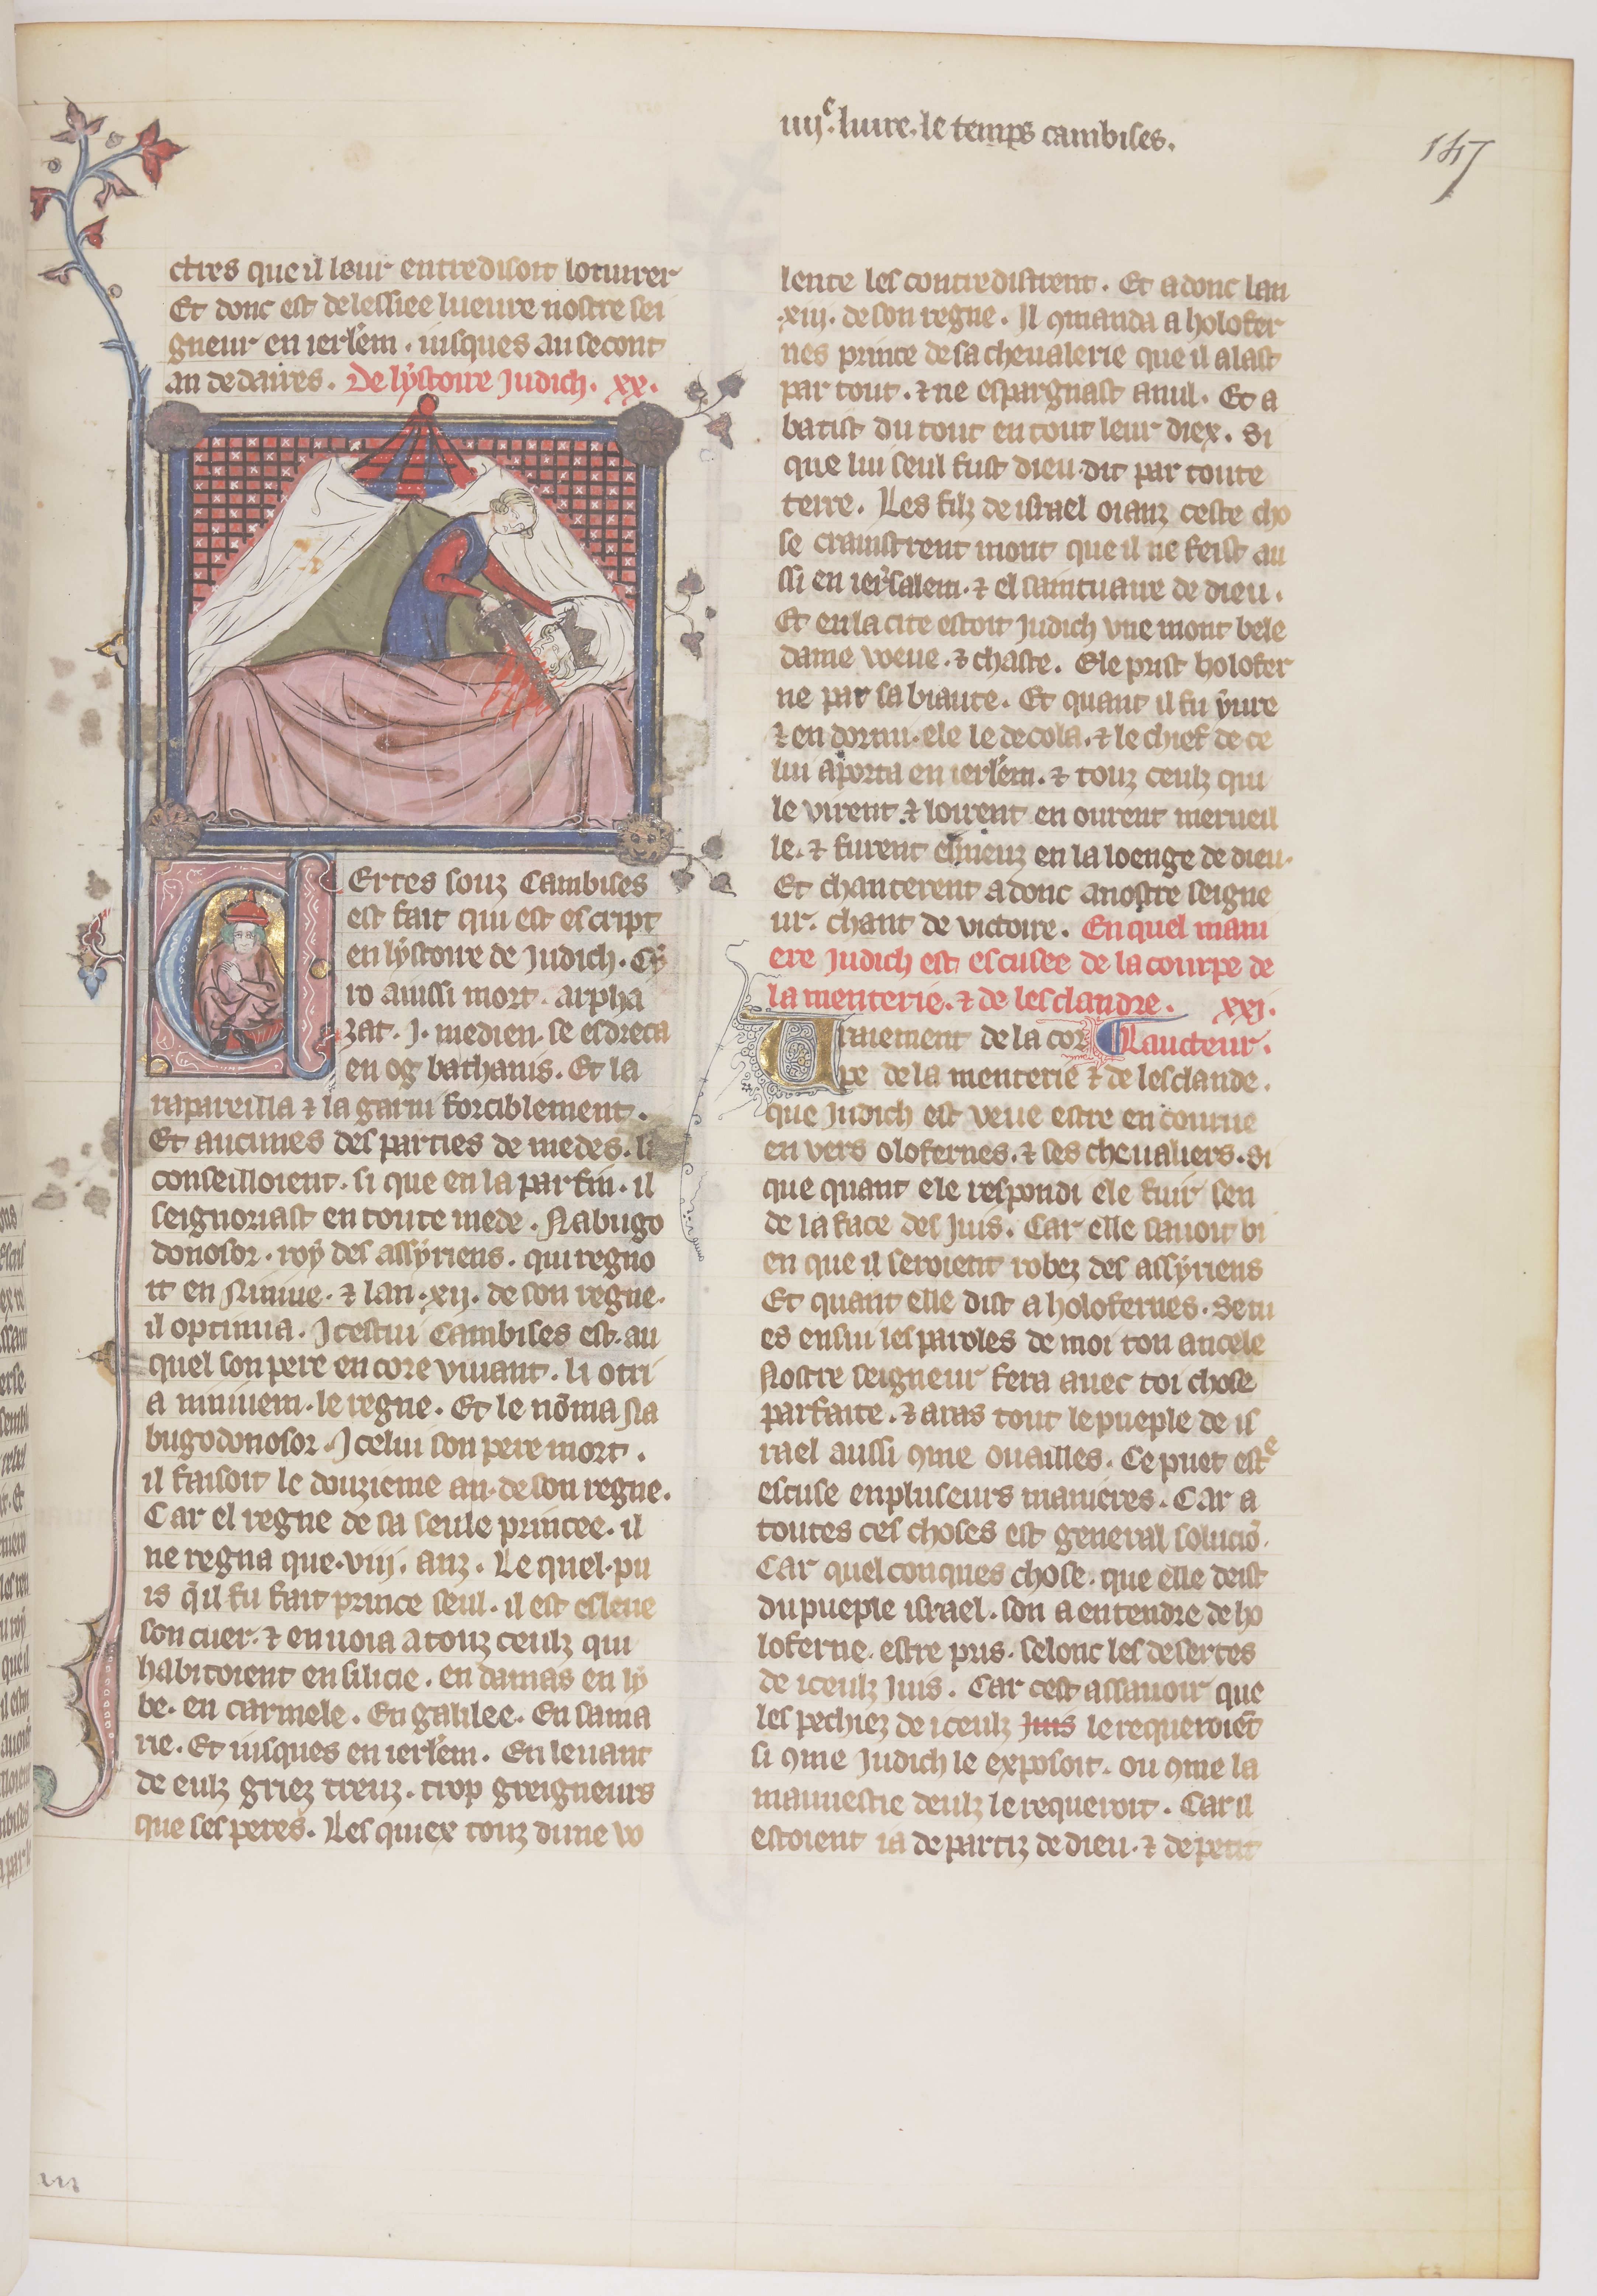 iiije. liure. le temps cambises.
147
ctres que il leur entredisoit loeuurer
Et donc est delessiee lueure nostre sei
gneur en ierlem. iusques au secont
an de daires. De lystoire Judich. xx.
CErtes souz Cambises
est fait qui est escript
en lystoire de Judich. Cy
ro aussi mort. arpha
zat. J. medien. se esdreca
en og bathanis. Et la
rapareilla ⁊ la garni forciblement.
Et aucunes des parties de medes. li
conseilloient. si que en la parfin. il
seignoriast en toute mede. Nabugo
donosor. roy des assyriens. qui regno
it en Niniue. ⁊ lan. xij. de son regne.
il optinua. Icestui Cambises est. au
quel son pere encore viuant. li otri
a niniuem. le regne. Et le nōma Na
bugodonosor. Icelui son pere mort.
il faisoit le douzieme an. de son regne.
Car el regne de sa seule princee. il
ne regna que. viij. anz. Le quel. pu
is q̄ il fu fait prince seul. il est esleue
son cuer. ⁊ enuoia a touz ceulz qui
habitoient en silicie. en damas en ly
be. en carmele. En galilee. En sama
rie. Et iusques en ierlem. En leuant
de eulz griez treuz. trop greigneurs
que ses peres. Les quiex touz dune vo
lente les contredistrent. Et adonc lan
.xiij. de son regne. Il 9manda a holofer
nes prince de sa cheualerie que il alast
par tout. ⁊ ne espargnast a nul. Et a
batist du tout en tout leur diex. Si
que lui seul fust dieu dit par toute
terre. Les filz de israel oianz ceste cho
se crainstrent mout que il ne feist au
ssi en ierusalem. ⁊ el saintuaire de dieu.
Et en la cite estoit Judich vne mout bele
dame veue. ⁊ chaste. Ele prist holofer
ne par sa biaute. Et quant il fu yure
⁊ endormi. ele le decola. ⁊ le chief de ce
lui aporta en ierlem. ⁊ touz ceulz qui
le virent ⁊ loirent en ourent merueil
le. ⁊ furent esmeuz en la loenge de dieu.
Et chanterent adonc a nostre seigne
ur. chant de victoire. En quel mani
ere Judich est escusee de la courpe de
la menterie. ⁊ de lesclandre. xxj.
Uraiement de la cor Laucteur.
pe de la menterie ⁊ de lesclande.
que Judich est veue estre encourue
en vers olofernes. ⁊ ses cheualiers. Si
que quant ele respondi ele fuir sen
de la face des Juis. Car elle sauoit bi
en que il seroient robez des assyriens
Et quant elle dist a holofernes. Se tu
es ensui les paroles de moi ton ancele
Nostre seigneur fera auec toi chose
parfaite. ⁊ aras tout le pueple de is
rael aussi 9me ouailles. Ce puet estᵉ
escuse en pluseurs manieres. Car a
toutes ces choses est general soluciō.
Car quelconques chose. que elle deist
du pueple israel. son a entendre de ho
loferne. estre pris. selonc les desertes
de iceulz Juis. Car cest assauoir que
les pechiez de iceulz Juis le requeroiēt
si 9me Judich le exposoit. ou 9me la
mauuestie deulz le requeroit. Car il
estoient ia departiz de dieu. ⁊ de petit